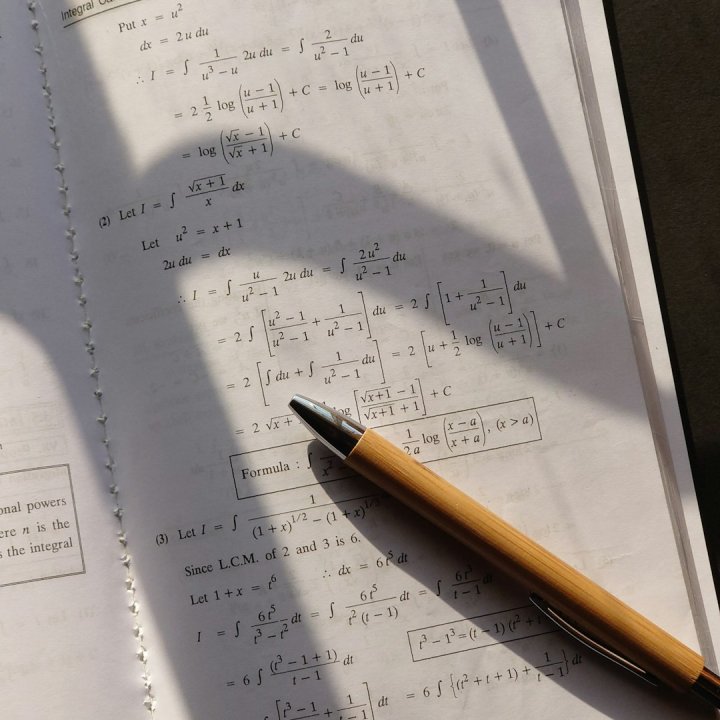 Integral
Put x = u²
dx = 2u du
∴ I = ∫ 1/(u³ − u) 2u du = ∫ 2/(u² − 1) du
= 2 1/2 log ((u − 1)/(u + 1)) + C = log ((u − 1)/(u + 1)) + C
= log ((√x − 1)/(√x + 1)) + C
(2) Let I = ∫ √(x + 1)/x dx
Let u² = x + 1
2u du = dx
∴ I = ∫ u/(u² − 1) 2u du = ∫ 2u²/(u² − 1) du
= 2 ∫ [(u² − 1)/(u² − 1) + 1/(u² − 1)] du = 2 ∫ [1 + 1/(u² − 1)] du
= 2 [∫ du + ∫ 1/(u² − 1) du] = 2 [u + 1/2 log ((u − 1)/(u + 1))] + C
= 2 √x + log [(√(x+1) − 1)/(√(x+1) + 1)] + C
Formula : ∫ x² 1/2a log ((x − a)/(x + a)), (x > a)
(3) Let I = ∫ 1/((1 + x)^1/2 − (1 + x)^1/3
Since L.C.M. of 2 and 3 is 6.
Let 1 + x = t⁶ ∴ dx = 6t⁵ dt
I = ∫ 6t⁵/(t³ − t²) dt = ∫ 6t⁵/(t² (t − 1)) dt = ∫ 6t³/(t − 1) dt
t³ − 1³ = (t − 1) (t² + t
= 6 ∫ (t³ − 1 + 1)/(t − 1) dt
= 6 ∫ {(t² + t + 1) + 1/(t − 1)} dt
∫ [(t³ − 1)/(t − 1) + 1/(t − 1)] dt
onal powers
ere n is the
s the integral